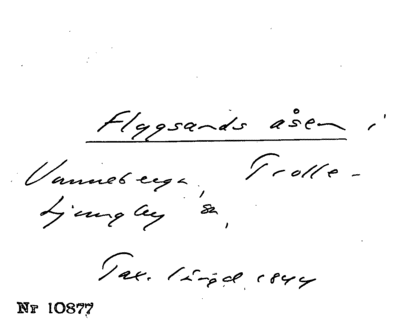 Flyggsands åsen i
Vanneberga, Trolle-
Ljungby sn,
Tax. längd 1844
Nr 10877